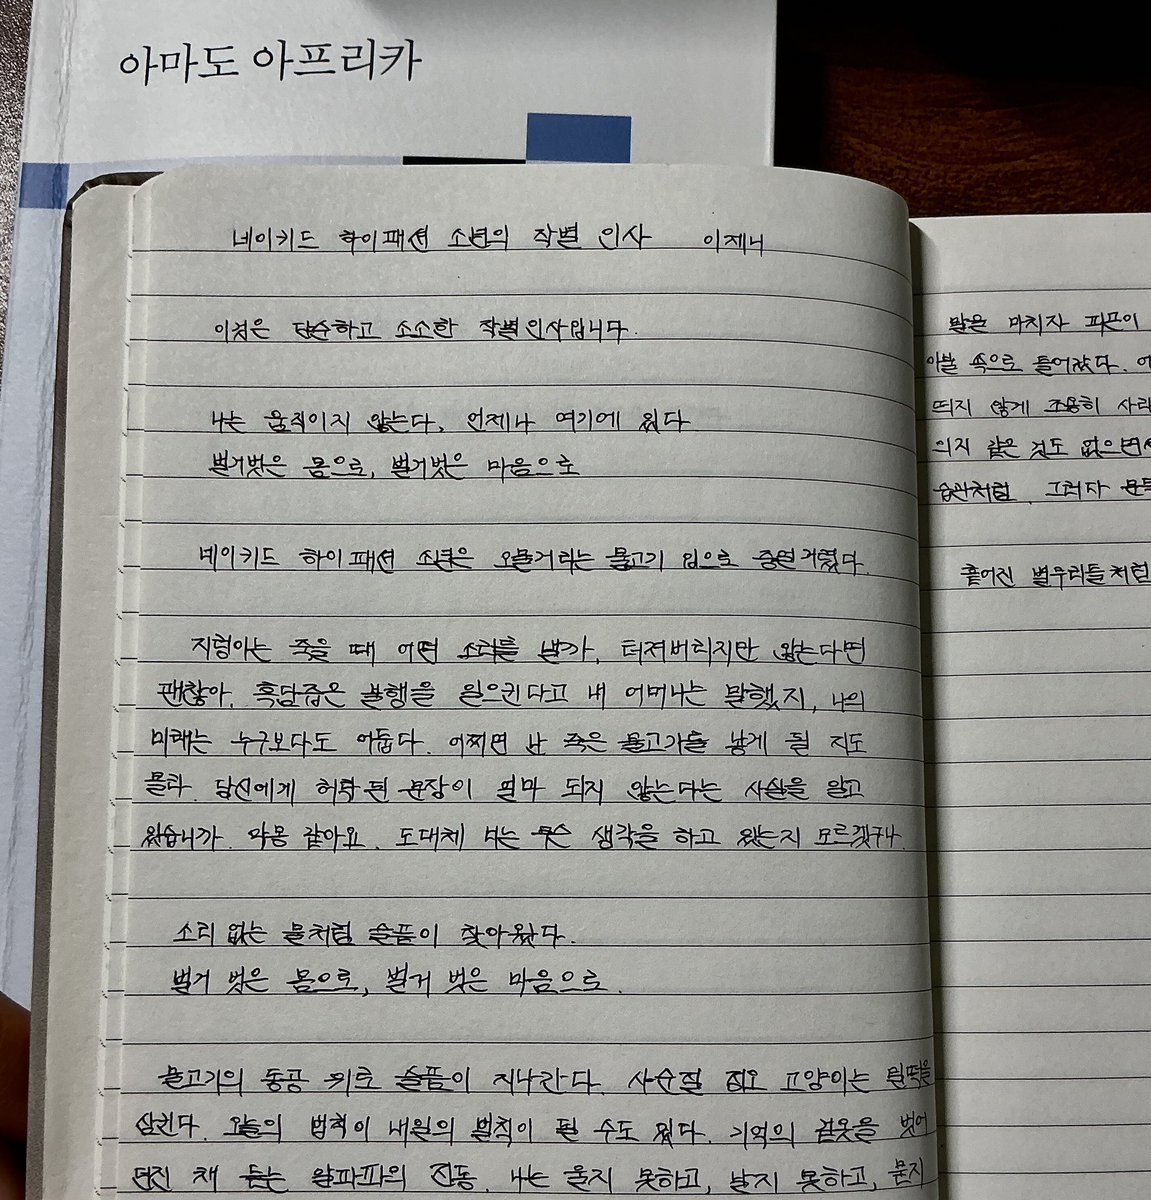 아마도 아프리카
네이키드 하이패션 소년의 작별 인사 이제니
이것은 단순하고 소소한 작별인사입니다.
나는 움직이지 않는다, 언제나 여기에 있다
벌거벗은 몸으로, 벌거벗은 마음으로
네이키드 하이패션 소년은 오물거리는 물고기 입으로 중얼거렸다.
지렁이는 죽을 때 어떤 소리를 낼까. 터져버리지만 않는다면
괜찮아. 흑담즙은 불행을 일으킨다고 내 어머니는 말했지, 나의
미래는 누구보다도 어둡다. 어쩌면 난 죽은 물고기를 낳게 될 지도
몰라. 당신에게 허락된 문장이 얼마 되지 않는다는 사실을 알고
있습니까. 악몽 같아요. 도대체 너는 무슨 생각을 하고 있는지 모르겠구나.
소리 없는 물처럼 슬픔이 찾아왔다.
벌거 벗은 몸으로, 벌거 벗은 마음으로.
물고기의 동공 위로 슬픔이 지나간다. 사순절 집오 고양이는 털떡을
삼킨다. 오늘의 법칙이 내일의 벌칙이 될 수도 있다. 기억의 겉옷을 벗어
던진 채 듣는 알파파의 진동. 나는 울지 못하고, 날지 못하고, 묻지
말을 마치자 피프이
이불 속으로 들어갔다. 어
띄지 않게 조용히 사라
의지 같은 것도 없으면서
습관처럼. 그러다 문득
흩어진 별무리들처럼